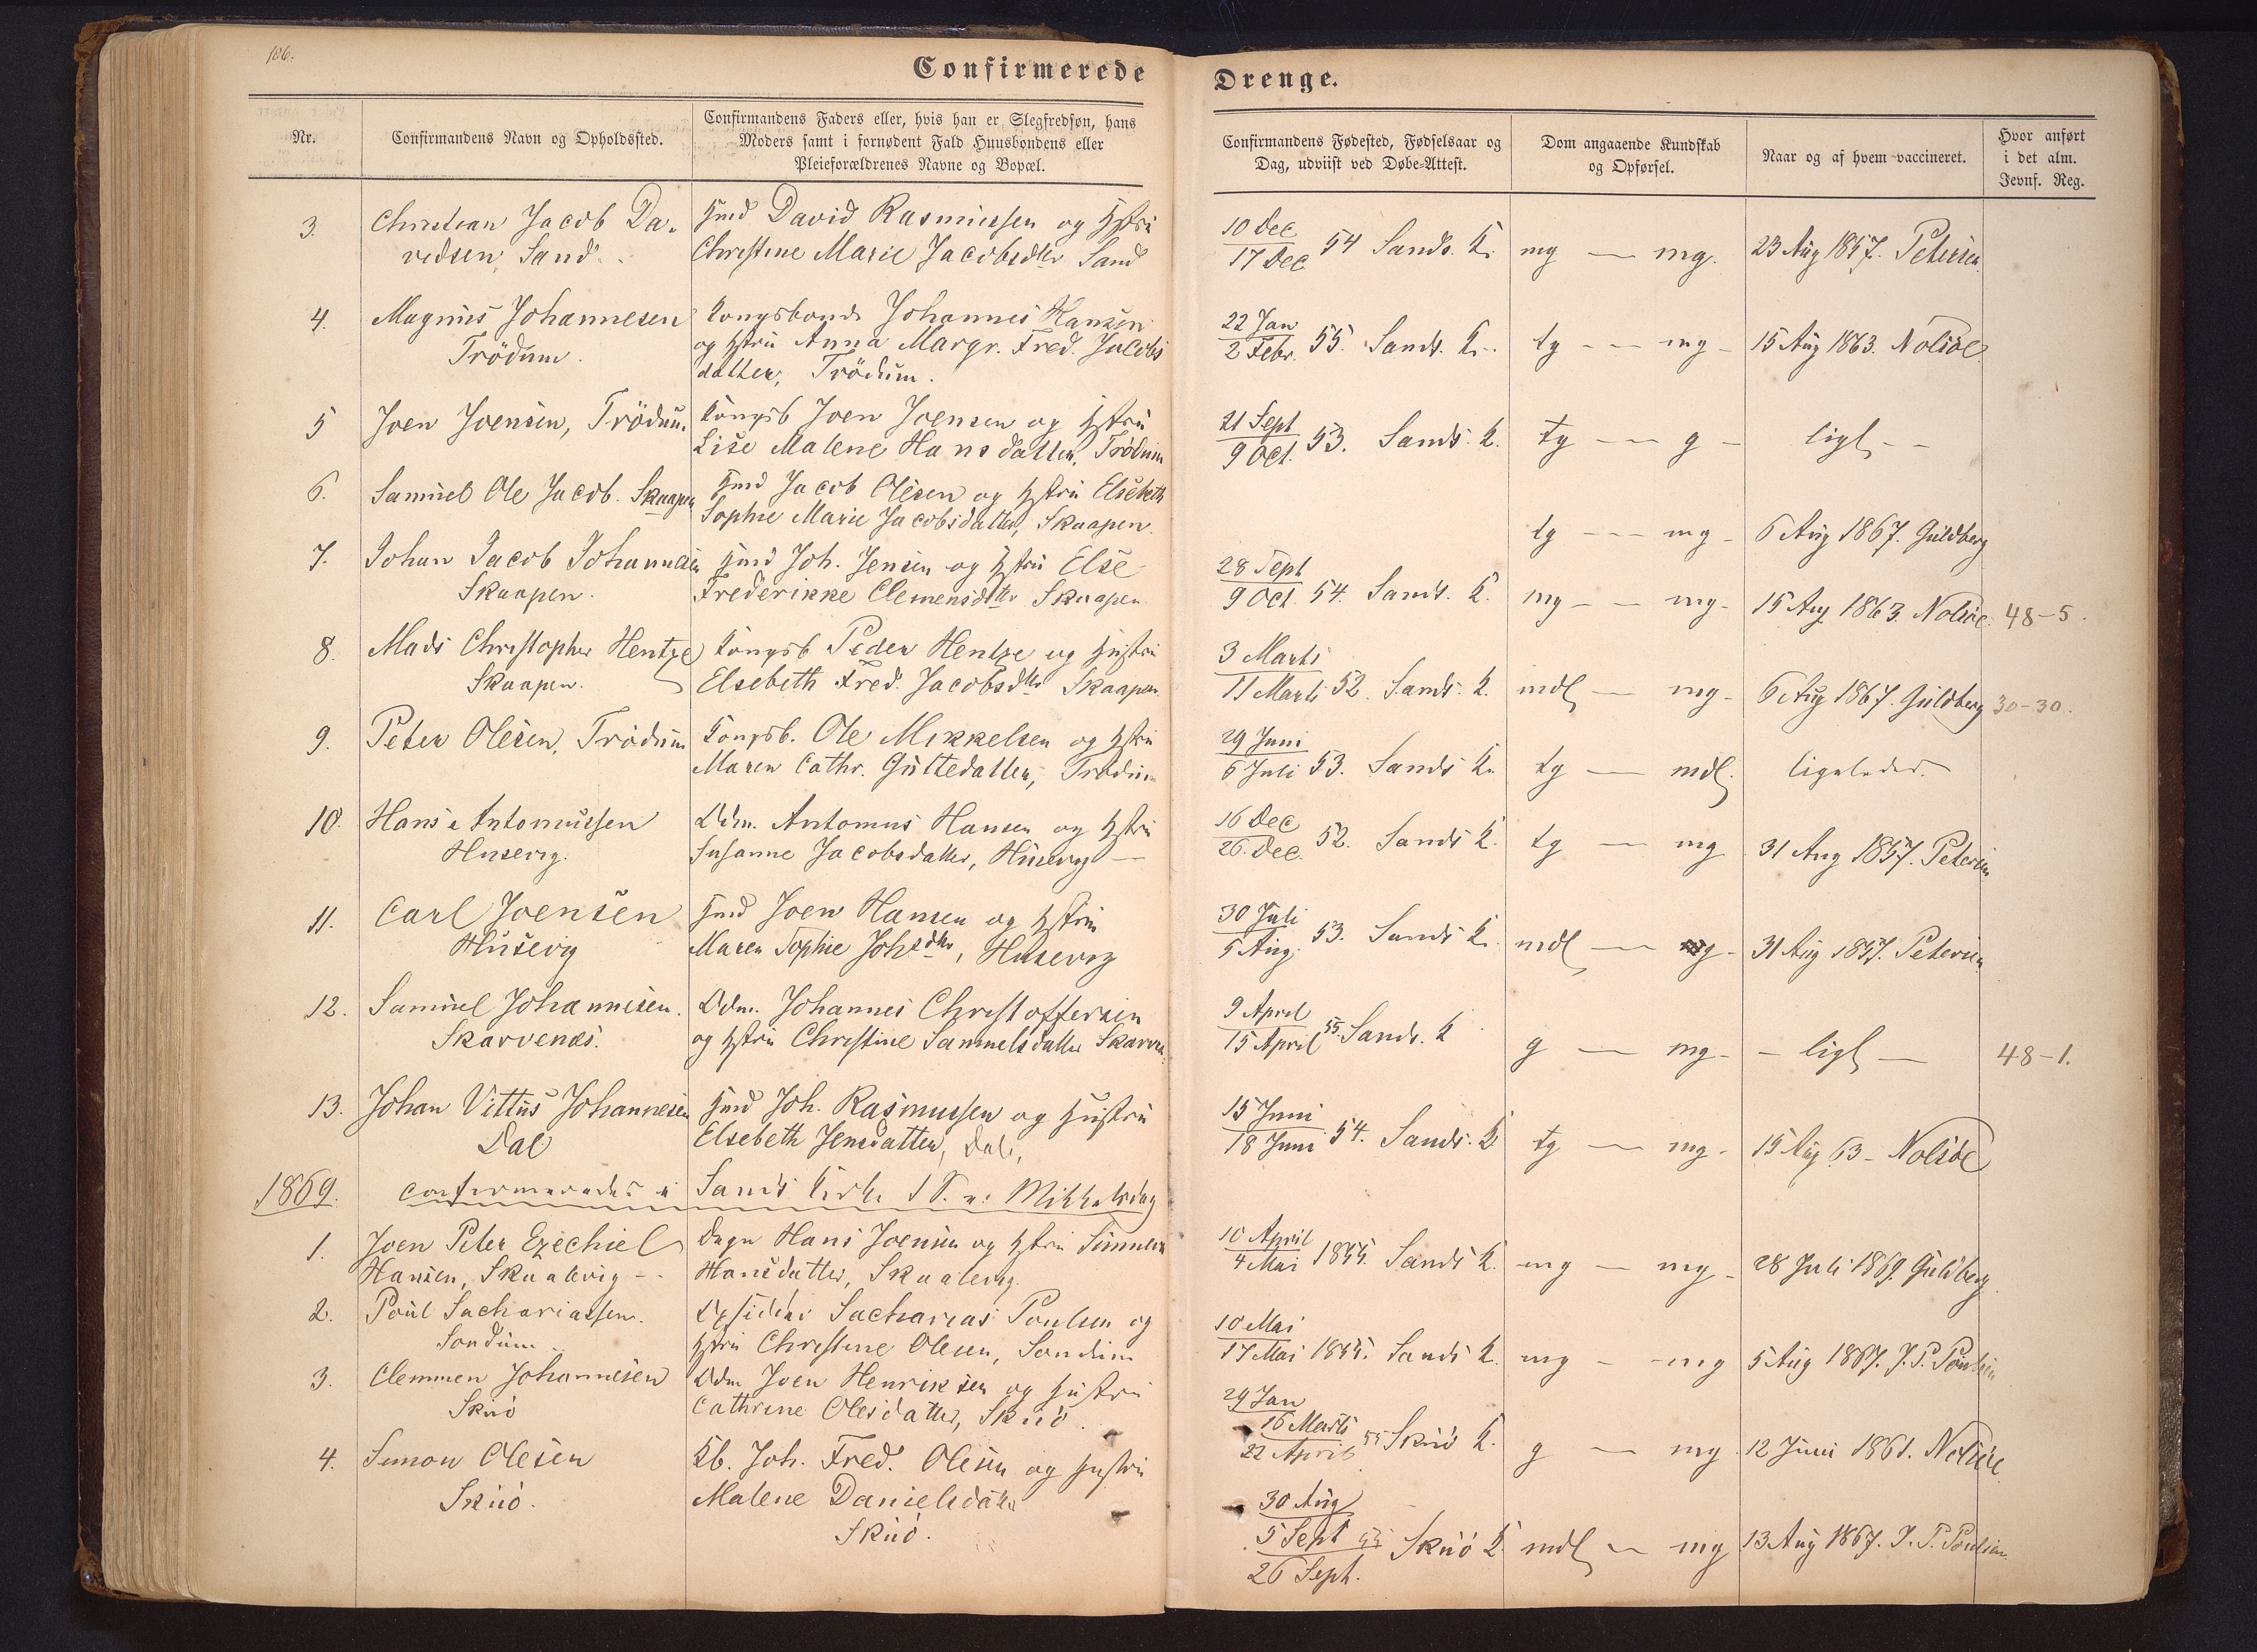 106.
Confirmerede Drenge.
Nr.
Confirmandens Navn og Opholdssted.
Confirmandens Faders eller, hvis han er Slegfredsøn, hans
Moders samt i fornødent Fald Huusbondens eller
Pleieforældrenes Navne og Bopæl.
Confirmandens Fødested, Fødselsaar og
Dag, udviist ved Døbe-Attest.
Dom angaaende Kundskab
og Opførsel.
Naar og af hvem vaccineret.
Hvor anført
i det alm.
Jevnf. Reg.
3. Christian Jacob Da-
vidsen Sand.
Huusmd David Rasmussen og Hstru
Christine Marie Jacobsdtr Sand
10 Dec
17 Dec 54 Sands. K. mg — mg. 23 Aug 1857. Petersen.
4. Magnus Johannesen
Trödum.
Kongsbonde Johannes Hansen
og Hstru Anna Margr. Fred. Jacobs
datter, Trödum.
22 Jan
2 Febr. 55. Sands. K. tg — mg — 15 Aug 1863. Nolsöe
5 Joen Joensen, Trödum
Kongsb Joen Joensen og Hstru
Lise Malene Hansdatter, Trödum
21 Sept
9 Oct. 53. Sands. K. tg — g — ligl —
6. Samuel Ole Jacob. Skaapen
Hmd Jacob Olesen og Hstru Elsebeth
Sophie Marie Jacobsdatter, Skaapen.
tg — mg — 6 Aug 1867. Guldberg
7. Johan Jacob Johannesen
Skaapen.
Hmd Joh. Jensen og Hstru Else
Frederikke Clemensdtr Skaapen
28 Sept
9 Oct. 54. Sands. K. mg — mg — 15 Aug 1863. Nolsöe. 48-5.
8. Mads Christopher Hentze
Skaapen.
Kongsb Peder Hentze og Hustru
Elsebeth Fred. Jacobsdtr Skaapen.
3 Marts
11 Marts 52. Sands. K. mdl — mg — 6 Aug 1867. Guldberg 30-30.
9. Peter Olesen, Trödum
Kongsb. Ole Mikkelsen og Hstru
Maren Cathr. Guttedatter, Trödum
29 Juni
6 Juli 53. Sands K. tg — mdl. ligeledes.
10. Hans Antoniussen
Husevig.
Odm. Antonius Hansen og Hstru
Susanne Jacobsdatter, Husevig —
16 Dec
26. Dec. 52. Sands K. tg — mg 31 Aug 1857. Petersen
11. Carl Joensen
Husevig
Hmd Joen Hansen og Hstru
Maren Sophie Johsdtr, Husevig
30 Juli
5 Aug. 53. Sands K. mdl — g — 31 Aug 1857. Petersen
12. Samuel Johannesen.
Skarvenæs.
Odm. Johannes Christoffersen
og Hstru Christine Samuelsdatter Skarvn.
9 April
15 April 55. Sands. K g — mg — — ligl — 48-1.
13. Johan Vittus Johannesen
Dal
Hmd Joh. Rasmussen og Hustru
Elsebeth Jensdatter, Dal,
15 Juni
18 Juni 54. Sands. K tg — mg — 15 Aug 63 — Nolsöe
1869. confirmeredes i Sands Kirke 1 S. e: Mikkelsdag
1. Joen Peter Ezechiel
Hansen, Skaalevig —
Hans Joensen og Hstru
Hansdatter, Skaalevig.
10 April
4 Mai 1855. Sands K. mg — mg — 28 Juli 1869. Guldberg
2. Poul Sachariassen.
Sondum
Sacharias Poulsen og
Hstru Christine Olesen, Sondum
10 Mai
17 Mai 1855. Sands K. mg — mg 5 Aug 1867. J. P. Poulsen
3. Clemmen Johannesen
Skuö
Odm Joen Henriksen og Hustru
Cathrine Olesdatter, Skuö.
29 Jan
16 Marts
22 April 55 Skuö K. g — mg 12 Juni 1861. Nolsöe
4. Simon Olesen
Skuö.
Kb. Joh. Fred. Olesen og Hustru
Malene Danielsdatter
Skuö.
30 Aug
5 Sept 55
26 Sept. Skuö K. mdl — mg 13 Aug 1867. J. P. Poulsen.